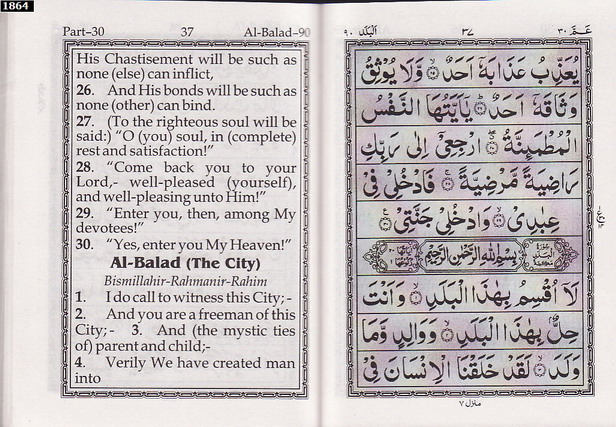 1864
Part-30 37 Al-Balad-90
His Chastisement will be such as
none (else) can inflict,
26. And His bonds will be such as
none (other) can bind.
27. (To the righteous soul will be
said:) “O (you) soul, in (complete)
rest and satisfaction!”
28. “Come back you to your
Lord,- well-pleased (yourself),
and well-pleasing unto Him!”
29. “Enter you, then, among My
devotees!”
30. “Yes, enter you My Heaven!”
Al-Balad (The City)
Bismillahir-Rahmanir-Rahim
1. I do call to witness this City;-
2. And you are a freeman of this
City;- 3. And (the mystic ties
of) parent and child;-
4. Verily We have created man
into
عَمَّ ٣٠ ٣٧ اَلْبَلَد ٩٠
يُعَذِّبُ عَذَابَهٗٓ اَحَدٌ ۙ وَّلَا يُوْثِقُ
وَثَاقَهٗٓ اَحَدٌ ؕ يٰۤاَيَّتُهَا النَّفْسُ
الْمُطْمَئِنَّةُ ۖ ارْجِعِيْۤ اِلٰى رَبِّكِ
رَاضِيَةً مَّرْضِيَّةً ۚ فَادْخُلِيْ فِيْ
عِبٰدِيْ ۙ وَادْخُلِيْ جَنَّتِيْ
بِسْمِ اللهِ الرَّحْمٰنِ الرَّحِيْمِ
لَاۤ اُقْسِمُ بِهٰذَا الْبَلَدِ ۙ وَاَنْتَ
حِلٌّۢ بِهٰذَا الْبَلَدِ ۙ وَوَالِدٍ وَّمَا
وَلَدَ ۙ لَقَدْ خَلَقْنَا الْاِنْسَانَ فِيْ
منزل ٧